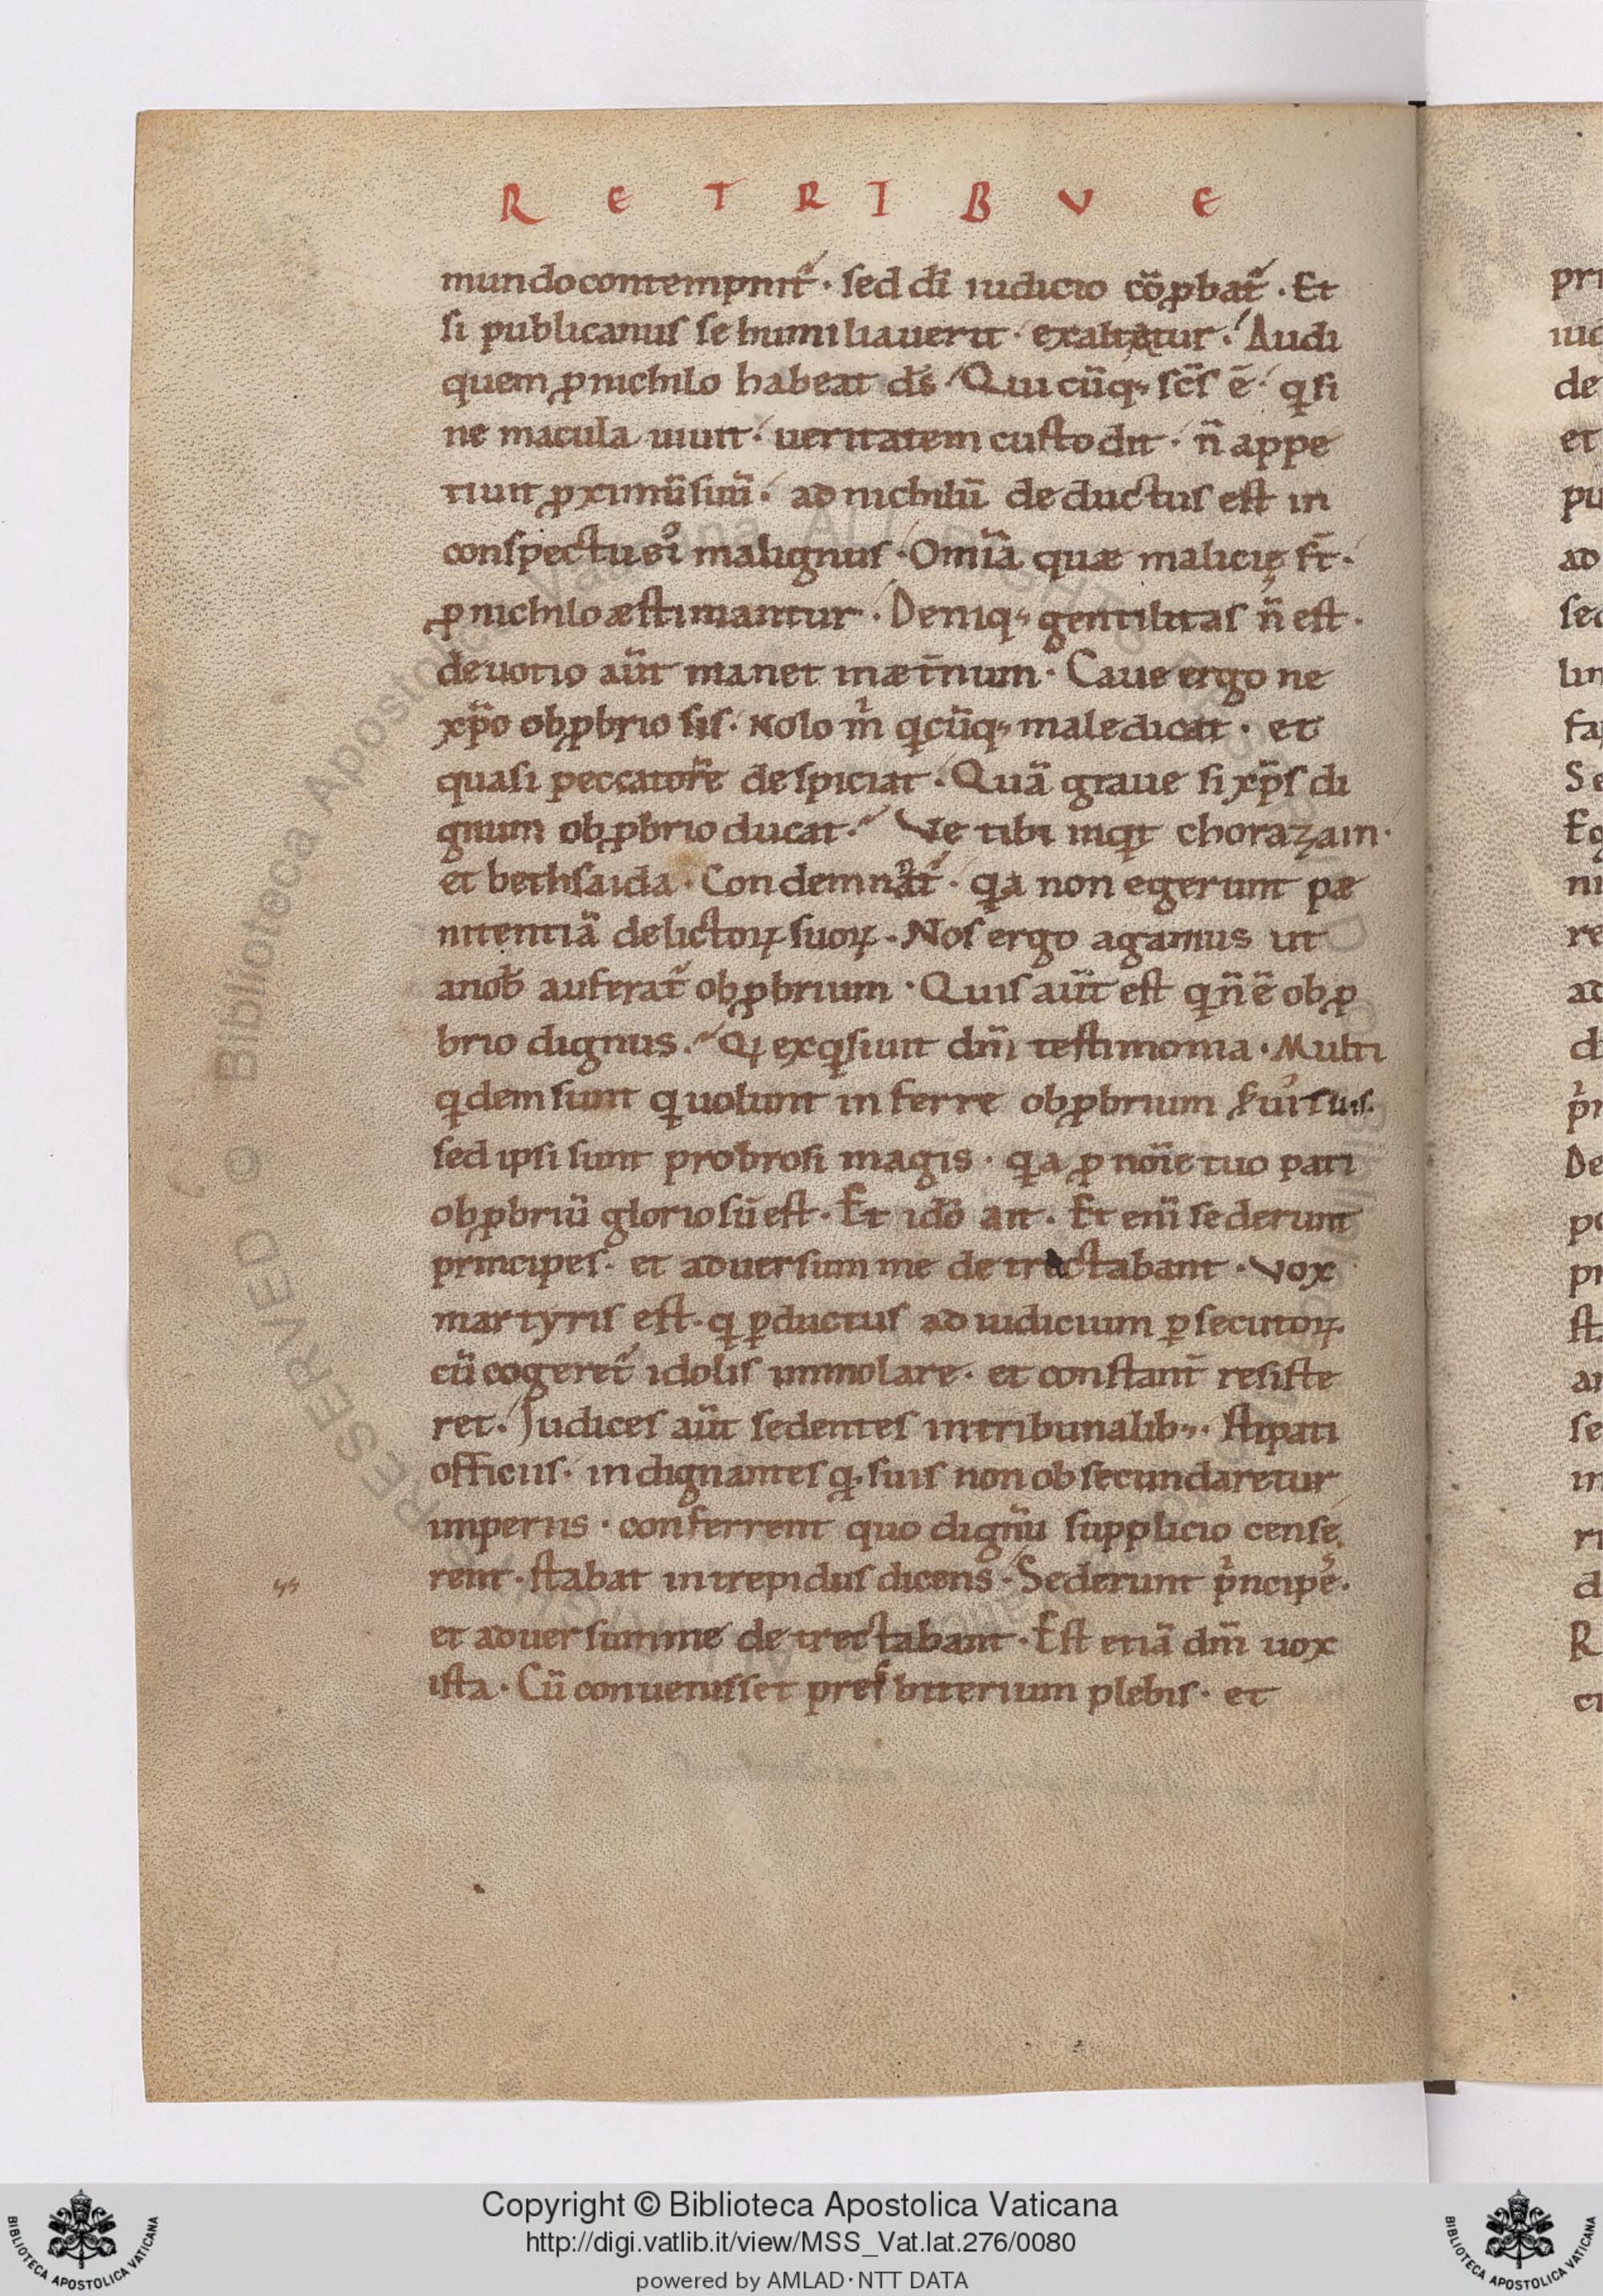 R E T R I B V E
mundo contempnit᷑ · sed dī iudicio cōꝓbat᷑ · Et
si publicanus se humiliauerit · exaltetur · Audi
quem ꝓ nichilo habeat ds̄ · Qui cūq; scs̄ ē · qͥ si
ne macula uiuit · ueritatem custodit · n̄ appe
tiuit ꝓximū suū · ad nichilū deductus est in
conspectu ei᷒ malignus · Omīa quæ malicię st̄ ·
ꝓ nichilo æstimantur · Deniq; gentilitas n̄ est ·
deuotio aūt manet in æt̄num · Caue ergo ne
xp̄o obꝓbrio sis · Nolo m̍ qͥcūq; maledicat · et
quasi peccatorē despiciat · Quā graue si xp̄s di
gnum obꝓbrio ducat · Ve tibi inqͥt chorazain ·
et bethsaida · Condemnat᷑ · qͥa non egerunt pæ
nitentiā delictoꝝ suoꝝ · Nos ergo agamus ut
a nob̄ auferat᷑ obꝓbrium · Quis aūt est qͥ n̄ ē obꝓ
brio dignus · Qͥ exqͥsiuit dn̄i testimonia · Multi
qͥdem sunt qͥ uolunt inferre obꝓbrium
sed ipsi sunt probrosi magis · qͥa ꝓ nōie tuo pati
obꝓbriū gloriosū est · Et idō ait · Et enī sederunt
principes · et aduersum me detrectabant · Vox
martyris est · qͥ ꝑductus ad iudicium ꝑsecutoꝝ ·
cū cogeret᷑ idolis immolare · et constant̄ resiste
ret · Judices aūt sedentes in tribunalib; · stipati
officiis · indignantes qͩ suis non obsecundaretur
imperiis · conferrent quo dignū supplicio cense
rent · stabat intrepidus dicens · Sederunt pͥncipes ·
et aduersum me detrectabant · Est etiā dn̄i uox
ista · Cū conuenisset presbiterium plebis · et
pri
iud
de
et
pu
ad
sed
lin
fa
Se
Eg
ni
re
ad
d
pͥ
De
po
pr
st
ar
se
in
ri
d
R
ci
© Biblioteca Apostolica Vaticana ALL RIGHTS RESERVED
Copyright © Biblioteca Apostolica Vaticana
http://digi.vatlib.it/view/MSS_Vat.lat.276/0080
powered by AMLAD·NTT DATA
BIBLIOTECA APOSTOLICA VATICANA
BIBLIOTECA APOSTOLICA VATICANA